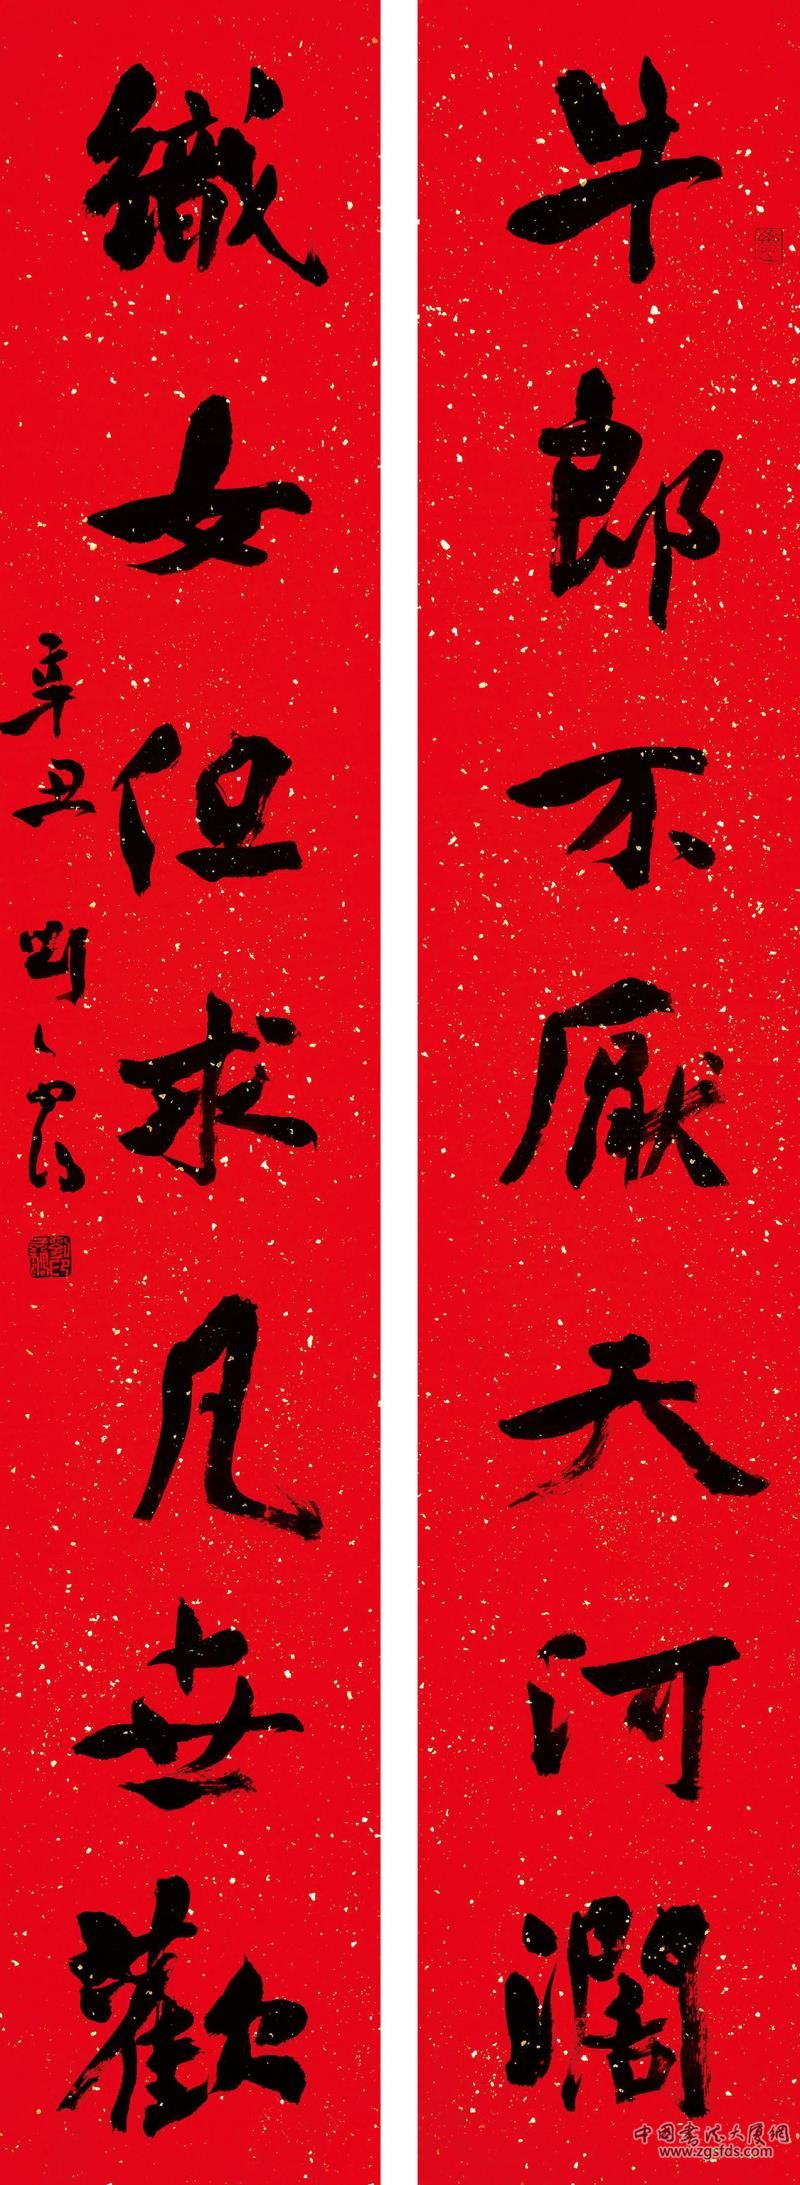 牛郎不厭天河濶
織女但求凡世歡
辛丑
中国書法大厦網
www.zgsfds.com